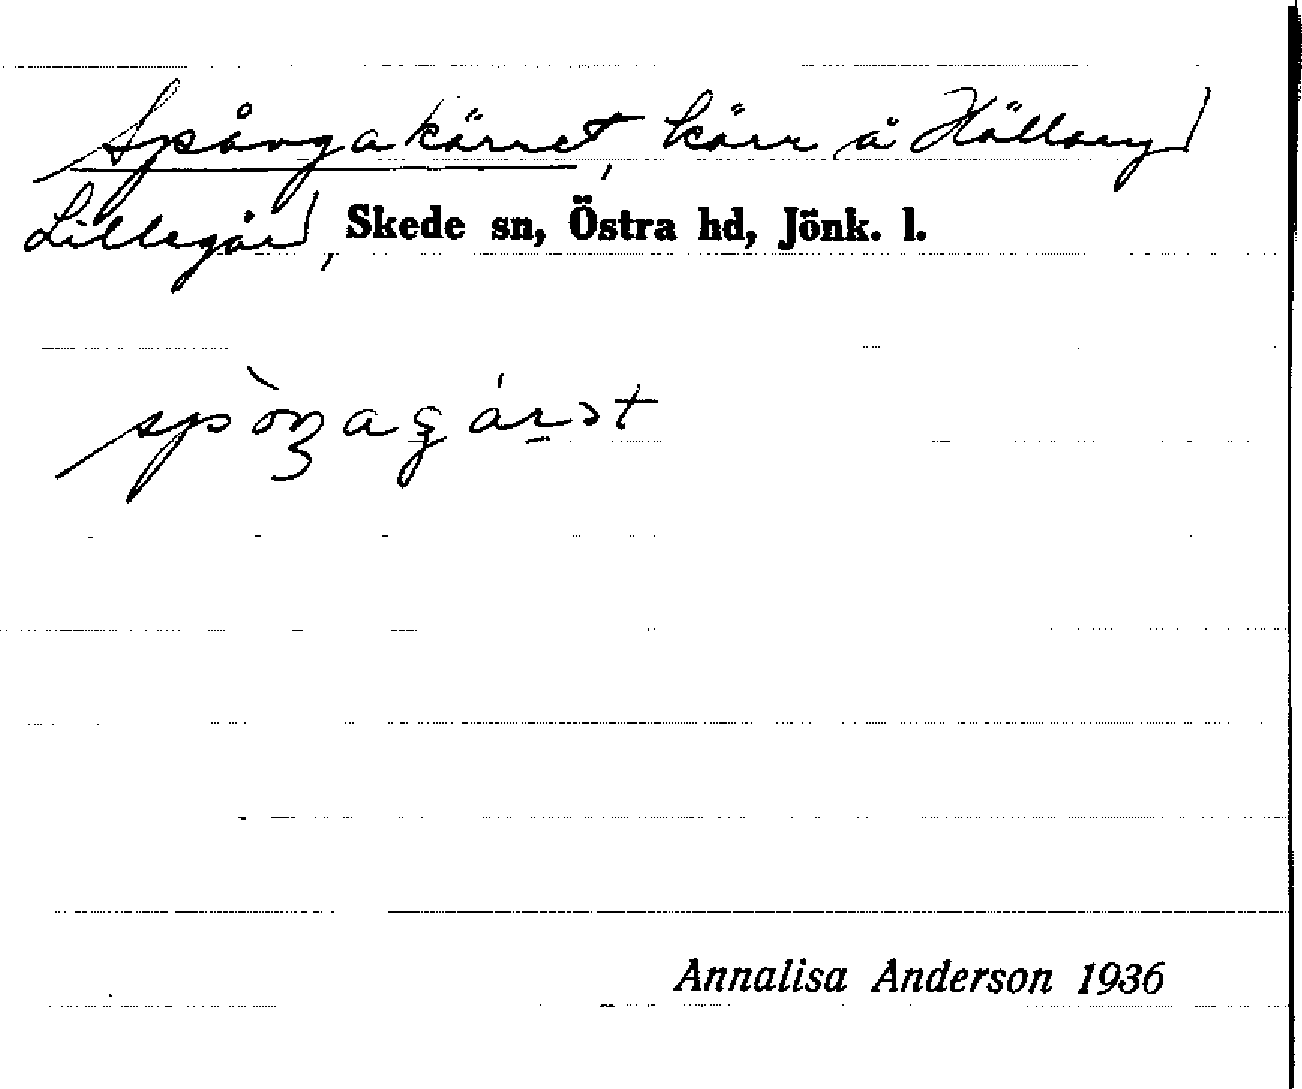 Spångakärret, kärr å Hälleryd
Lillegård, Skede sn, Östra hd, Jönk. l.
Annalisa Anderson 1936